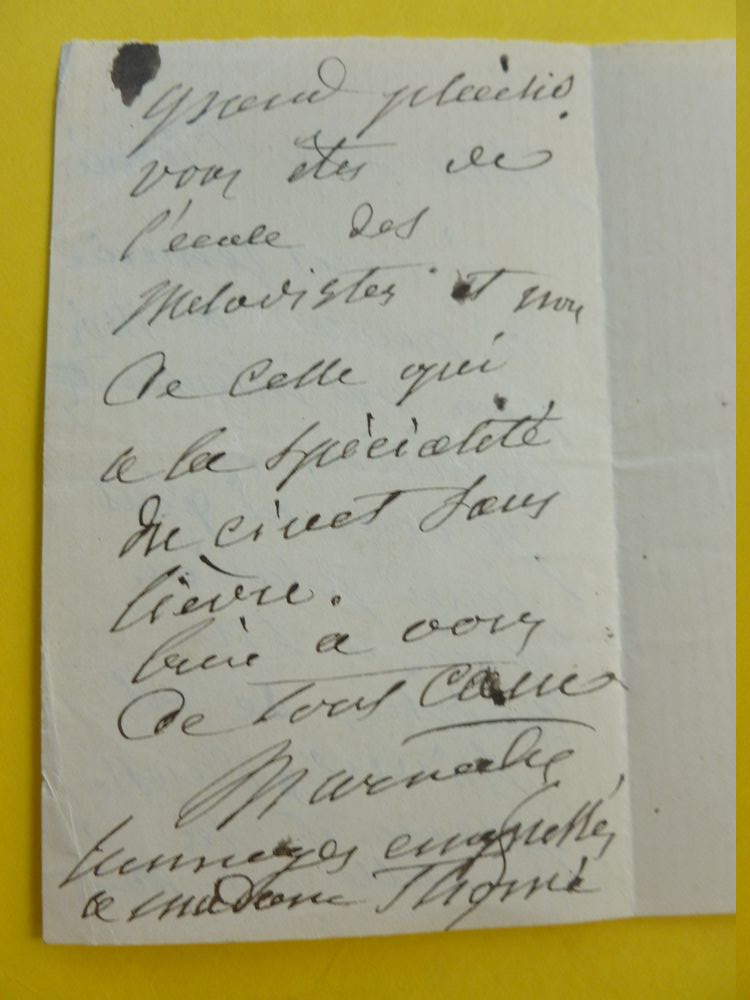 grand plaisir.
vous êtes de
l'école des
Melodistes et non
de celle qui
a la spécialité
du civet sans
lièvre.
bien à vous
de tout cœur
hommages empressés
a madame Thomé